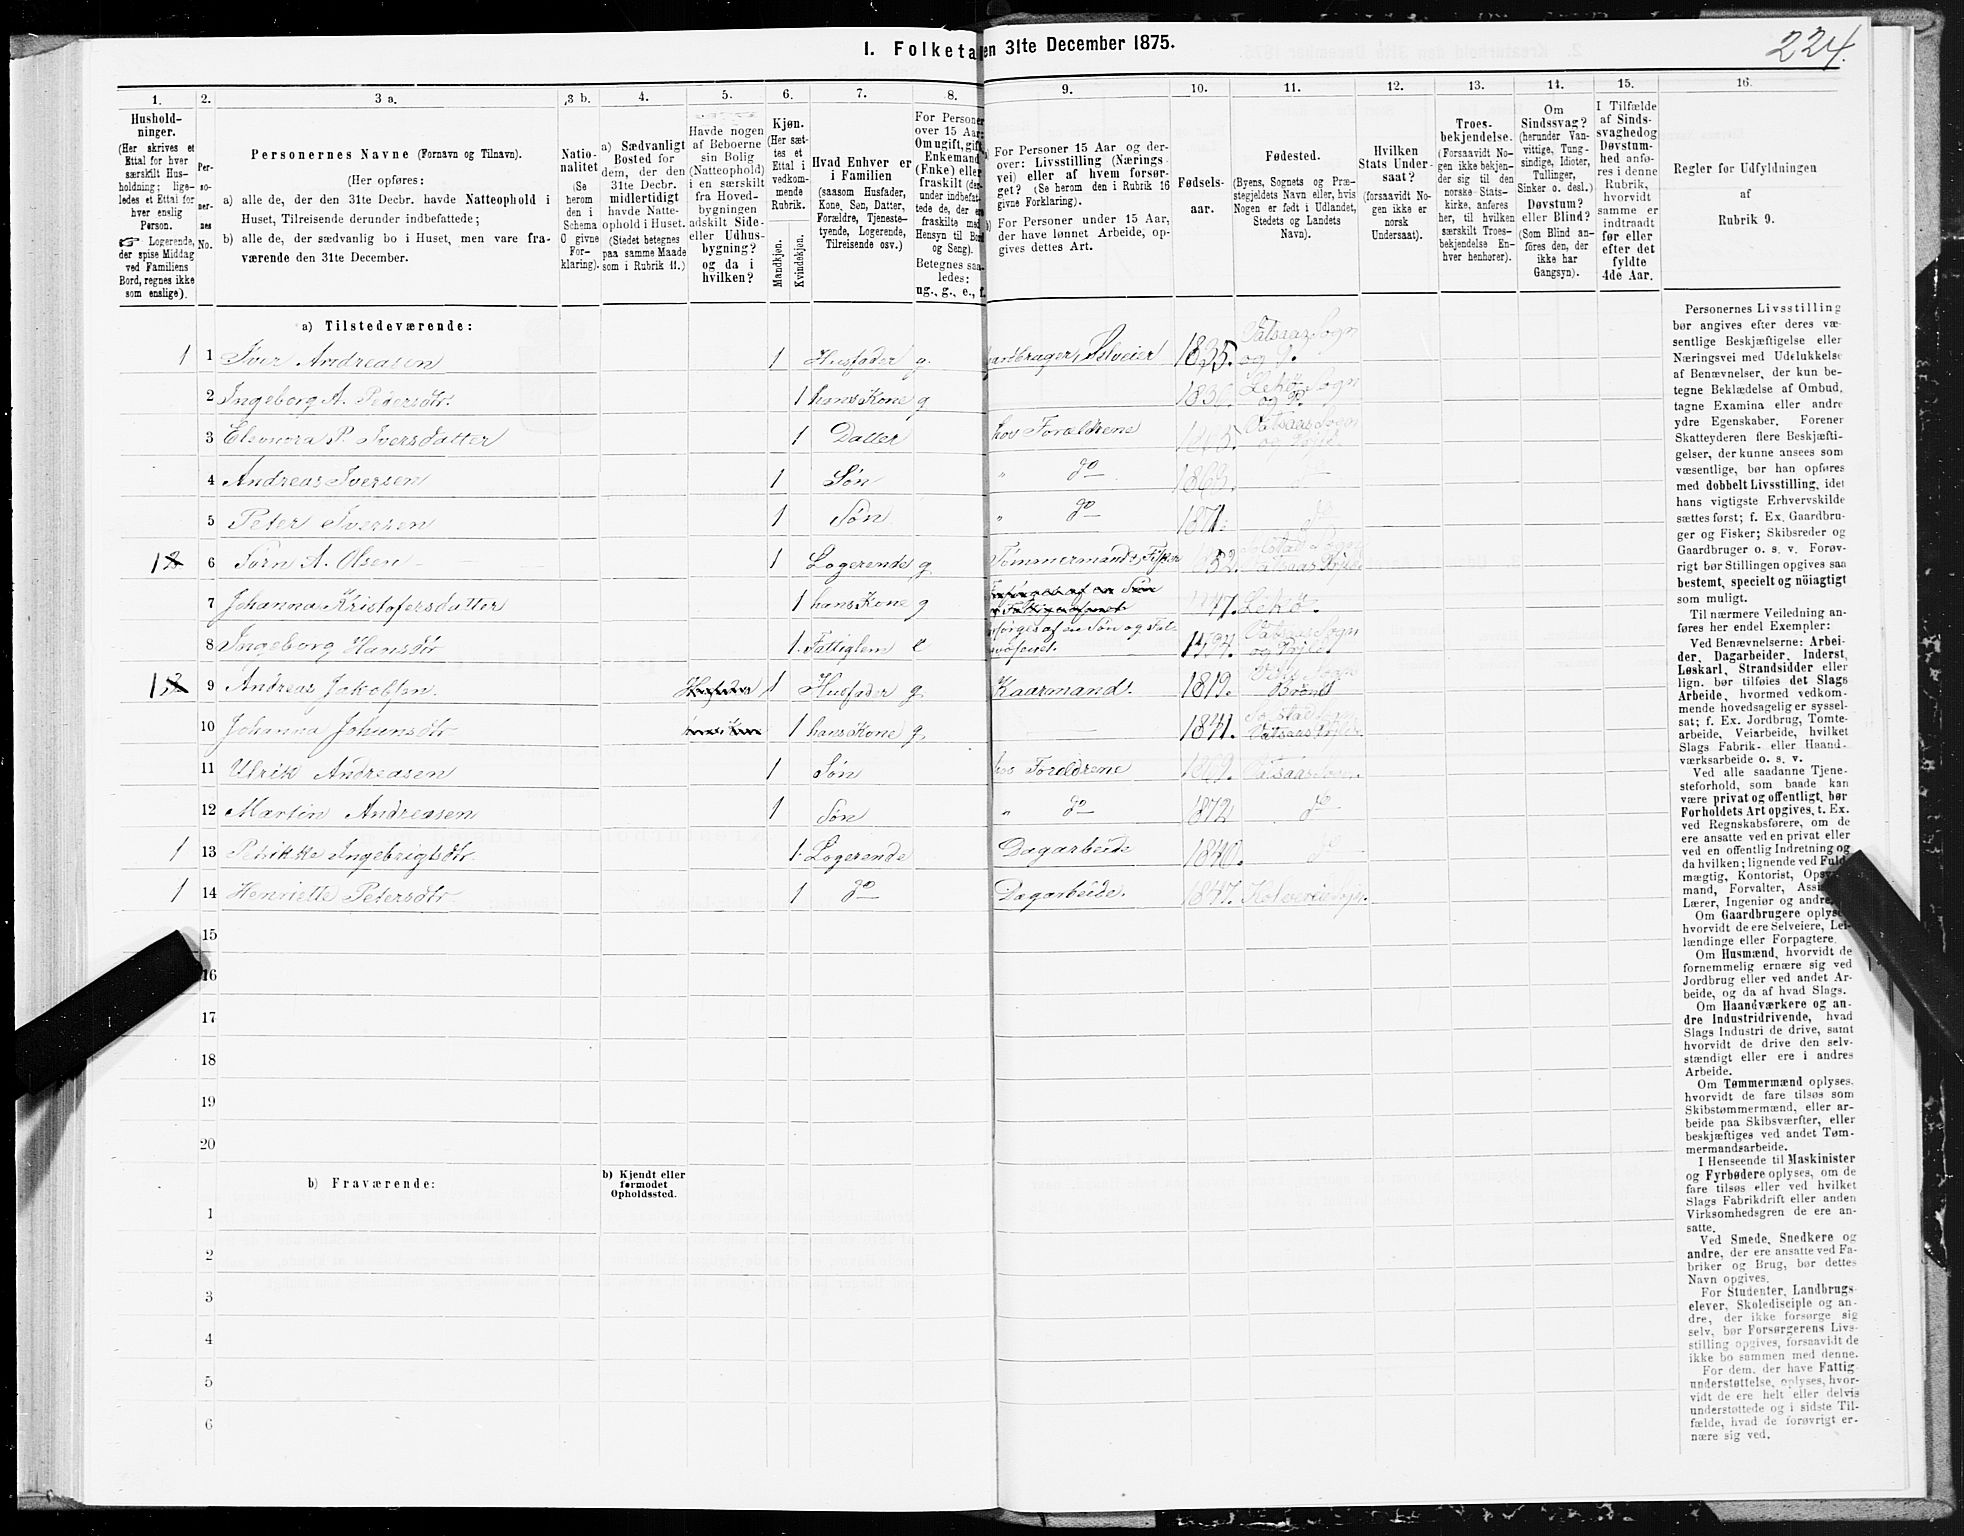 224.
I. Folketa en 31te December 1875.
1. 2. 3 a. 3 b. 4. 5. 6. 7. 8. 9. 10. 11. 12. 13. 14. 15. 16.
Hushold-
ninger.
(Her skrives et
Ettal for hver
særskilt Hus-
holdning; lige-
ledes et Ettal for
hver enslig
Person.
☞ Logerende,
der spise Middag
ved Familiens
Bord, regnes ikke
som enslige).
Per-
so-
ner-
nes
No.
Personernes Navne (Fornavn og Tilnavn).
(Her opføres:
a) alle de, der den 31te Decbr. havde Natteophold i
Huset, Tilreisende derunder indbefattede;
b) alle de, der sædvanlig bo i Huset, men vare fra-
værende den 31te December.
Natio-
nalitet
(Se
herom
den i
Schema
O givne
For-
klaring).
a) Sædvanligt
Bosted for
dem, der den
31te Decbr.
midlertidigt
havde Natte-
ophold i Huset.
(Stedet betegnes
paa samme Maade
som i Rubrik 11.)
Havde nogen
af Beboerne
sin Bolig
(Natteophold)
i en særskilt
fra Hoved-
bygningen
adskilt Side-
eller Udhus-
bygning?
og da i
hvilken?
Kjøn.
(Her sæt-
tes et
Ettal i
vedkom-
mende
Rubrik.
Mandkjøn.
Kvindekjøn.
Hvad Enhver er
i Familien
(saasom Husfader,
Kone, Søn, Datter,
Forældre, Tjeneste-
tyende, Logerende,
Tilreisende osv.)
For Personer
over 15 Aar:
Om ugift, gift,
Enkemand
(Enke) eller
fraskilt (der-
under indbefat-
tede de, der ere
fraskilte med
Hensyn til Bord
og Seng).
Betegnes saa-
ledes:
ug., g., e., f.
a) For Personer 15 Aar og der-
over: Livsstilling (Nærings-
vei) eller af hvem forsør-
get? (Se herom den i Rubrik 16
givne Forklaring).
b) For Personer under 15 Aar,
der have lønnet Arbeide, op-
gives dettes Art.
Fødsels-
aar.
Fødested.
(Byens, Sognets og Præ-
stegjeldets Navn eller, hvis
Nogen er født i Udlandet,
Stedets og Landets
Navn).
Hvilken
Stats Under-
saat?
(forsaavidt No-
gen ikke er
norsk
Undersaat).
Troes-
bekjendelse.
(Forsaavidt No-
gen ikke bekjen-
der sig til den
norske Stats-
kirke, anføres
her, til hvilken
særskilt Troes-
bekjendelse En-
hver henhører).
Om
Sindssvag?
(herunder Van-
vittige, Tung-
sindige, Idioter,
Tullinger,
Sinker o. desl.)
Døvstum?
eller Blind?
(Som Blind an-
føres den, der
ikke har
Gangsyn).
I Tilfælde
af Sinds-
svaghed og
Døvstum-
hed anfø-
res i denne
Rubrik,
hvorvidt
samme er
indtraadt
før eller
efter det
fyldte
4de Aar.
Regler før Udfyldningen
af
Rubrik 9.
a) Tilstedeværende:
1 1 Iver Andreasen 1 Husfader g. Selveier 1835. Vatsaas Sogn og P.
2 Ingeborg A. Pedersdtr. 1 hans Kone g 1836. Lekø Sogn og P.
3 Eleonora P. Iversdatter 1 Datter hos Forældrene Vatsaas Sogn
4 Andreas Iversen 1 Søn " do do
5 Peter Iversen 1 Søn " do 1871. do
1 6 A. Olsen 1 Logerende g Tømmermand &
7 Johanna Kristofersdatter 1 hans Kone g Lekø.
8 Ingeborg Hansdtr 1. Fattiglem e af en Søn og 1794. Vatsaas Sogn
1 9 Andreas Jakobsen. 1 Husfader g. Kaarmand. 1819.
10 Johanna Johansdtr 1 hans Kone g. 1841.
11 Ulrik Andreasen 1 Søn hos Forældrene 1869. Vatsaas Sogn.
12 Martin Andreasen 1 Søn " do 1872 do
1 13 Ingebrigtsdtr. 1. Logerende Dagarbeide 1840. do
1 14 Henriette Petersdtr 1 do Dagarbeide. 1847. Kolvereid Sogn.
15
16
17
18
19
20
b) Fraværende:
b) Kjendt eller
formodet
Opholdssted.
1
2
3
4
5
6
Personernes Livsstilling
bør angives efter deres væ-
sentlige Beskjæftigelse eller
Næringsvei med Udelukkelse
af Benævnelser, der kun be-
tegne Beklædelse af Ombud,
tagne Examina eller andre
ydre Egenskaber. Forener
Skatteyderen flere Beskjæfti-
gelser, der kunne ansees som
væsentlige, bør han opføres
med dobbelt Livsstilling, idet
hans vigtigste Erhvervskilde
sættes først; f. Ex. Gaardbru-
ger og Fisker; Skibsreder og
Gaardbruger o. s. v. Forøv-
rigt bør Stillingen opgives saa
bestemt, specielt og nöiagtigt
som muligt.
Til nærmere Veiledning an-
føres her endel Exempler:
Ved Benævnelserne: Arbei-
der, Dagarbeider, Inderst,
Løskarl, Strandsidder eller
lign. bør tilføies det Slags
Arbeide, hvormed vedkom-
mende hovedsagelig er syssel-
sat; f. Ex. Jordbrug, Tomte-
arbeide, Veiarbeide, hvilket
Slags Fabrik- eller Haand-
værksarbeide o. s. v.
Ved alle saadanne Tjene-
steforhold, som baade kan
være privat og offentligt, bør
Forholdets Art opgives, t. Ex.
ved Regnskabsførere, om de
ere ansatte ved en privat eller
ved en offentlig Indretning og
da hvilken; lignende ved Fuld-
mægtig, Kontorist,
mand, Forvalter,
Lærer, Ingeniør og andre.
Om Gaardbrugere oplyses,
hvorvidt de ere Selveiere, Lei-
lændinge eller Forpagtere.
Om Husmænd, hvorvidt de
fornemmelig ernære sig ved
Jordbrug eller ved andet Ar-
beide, og da af hvad Slags.
Om Haandværkere og an-
dre Industridrivende, hvad
Slags Industri de drive, samt
hvorvidt de drive den selv-
stændigt eller ere i andres
Arbeide.
Om Tømmermænd oplyses,
hvorvidt de fare tilsøs som
Skibstømmermænd, eller ar-
beide paa Skibsværfter, eller
beskjæftiges ved andet Tøm-
mermandsarbeide.
I Henseende til Maskinister
og Fyrbødere oplyses, om de
fare tilsøs eller ved hvilket
Slags Fabrikdrift eller anden
Virksomhedsgren de ere an-
satte.
Ved Smede, Snedkere og
andre, der ere ansatte ved Fa-
briker og Brug, bør dettes
Navn opgives.
For Studenter, Landbrugs-
elever, Skoledisciple og an-
dre, der ikke forsørge sig
selv, bør Forsørgerens Livs-
stilling opgives, forsaavidt de
ikke bo sammen med denne.
For dem, der have Fattig-
understøttelse, oplyses, hvor-
vidt de ere helt eller delvis
understøttede og i sidste Til-
fælde, hvad de forøvrigt er-
nære sig ved.